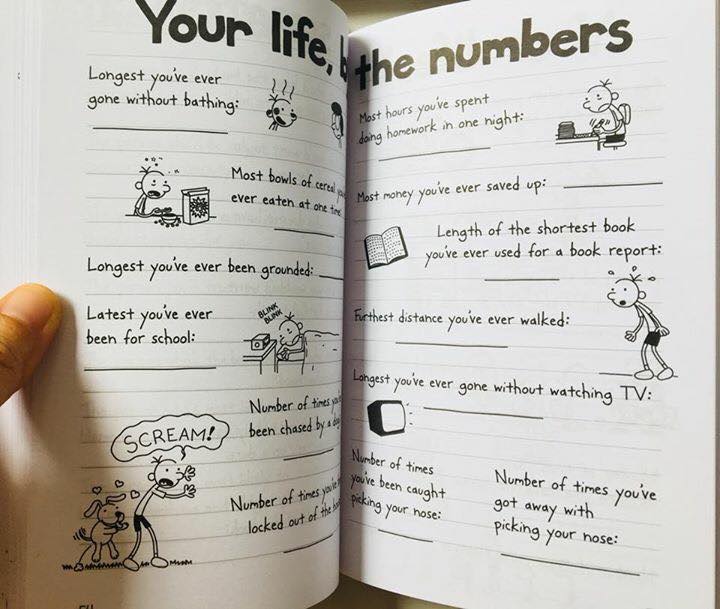 Your life, b the numbers
Longest you've ever
gone without bathing:
Most bowls of cereal
ever eaten at one
Longest you've ever been grounded:
Latest you've ever
been for school:
BLINK
BLINK
Number of times
been chased by a
SCREAM!
Number of times
locked out of the
Most hours you've spent
doing homework in one night:
Most money you've ever saved up:
Length of the shortest book
you've ever used for a book report:
Furthest distance you've ever walked:
Longest you've ever gone without watching TV:
Number of times
you've been caught
picking your nose:
Number of times you've
got away with
picking your nose: